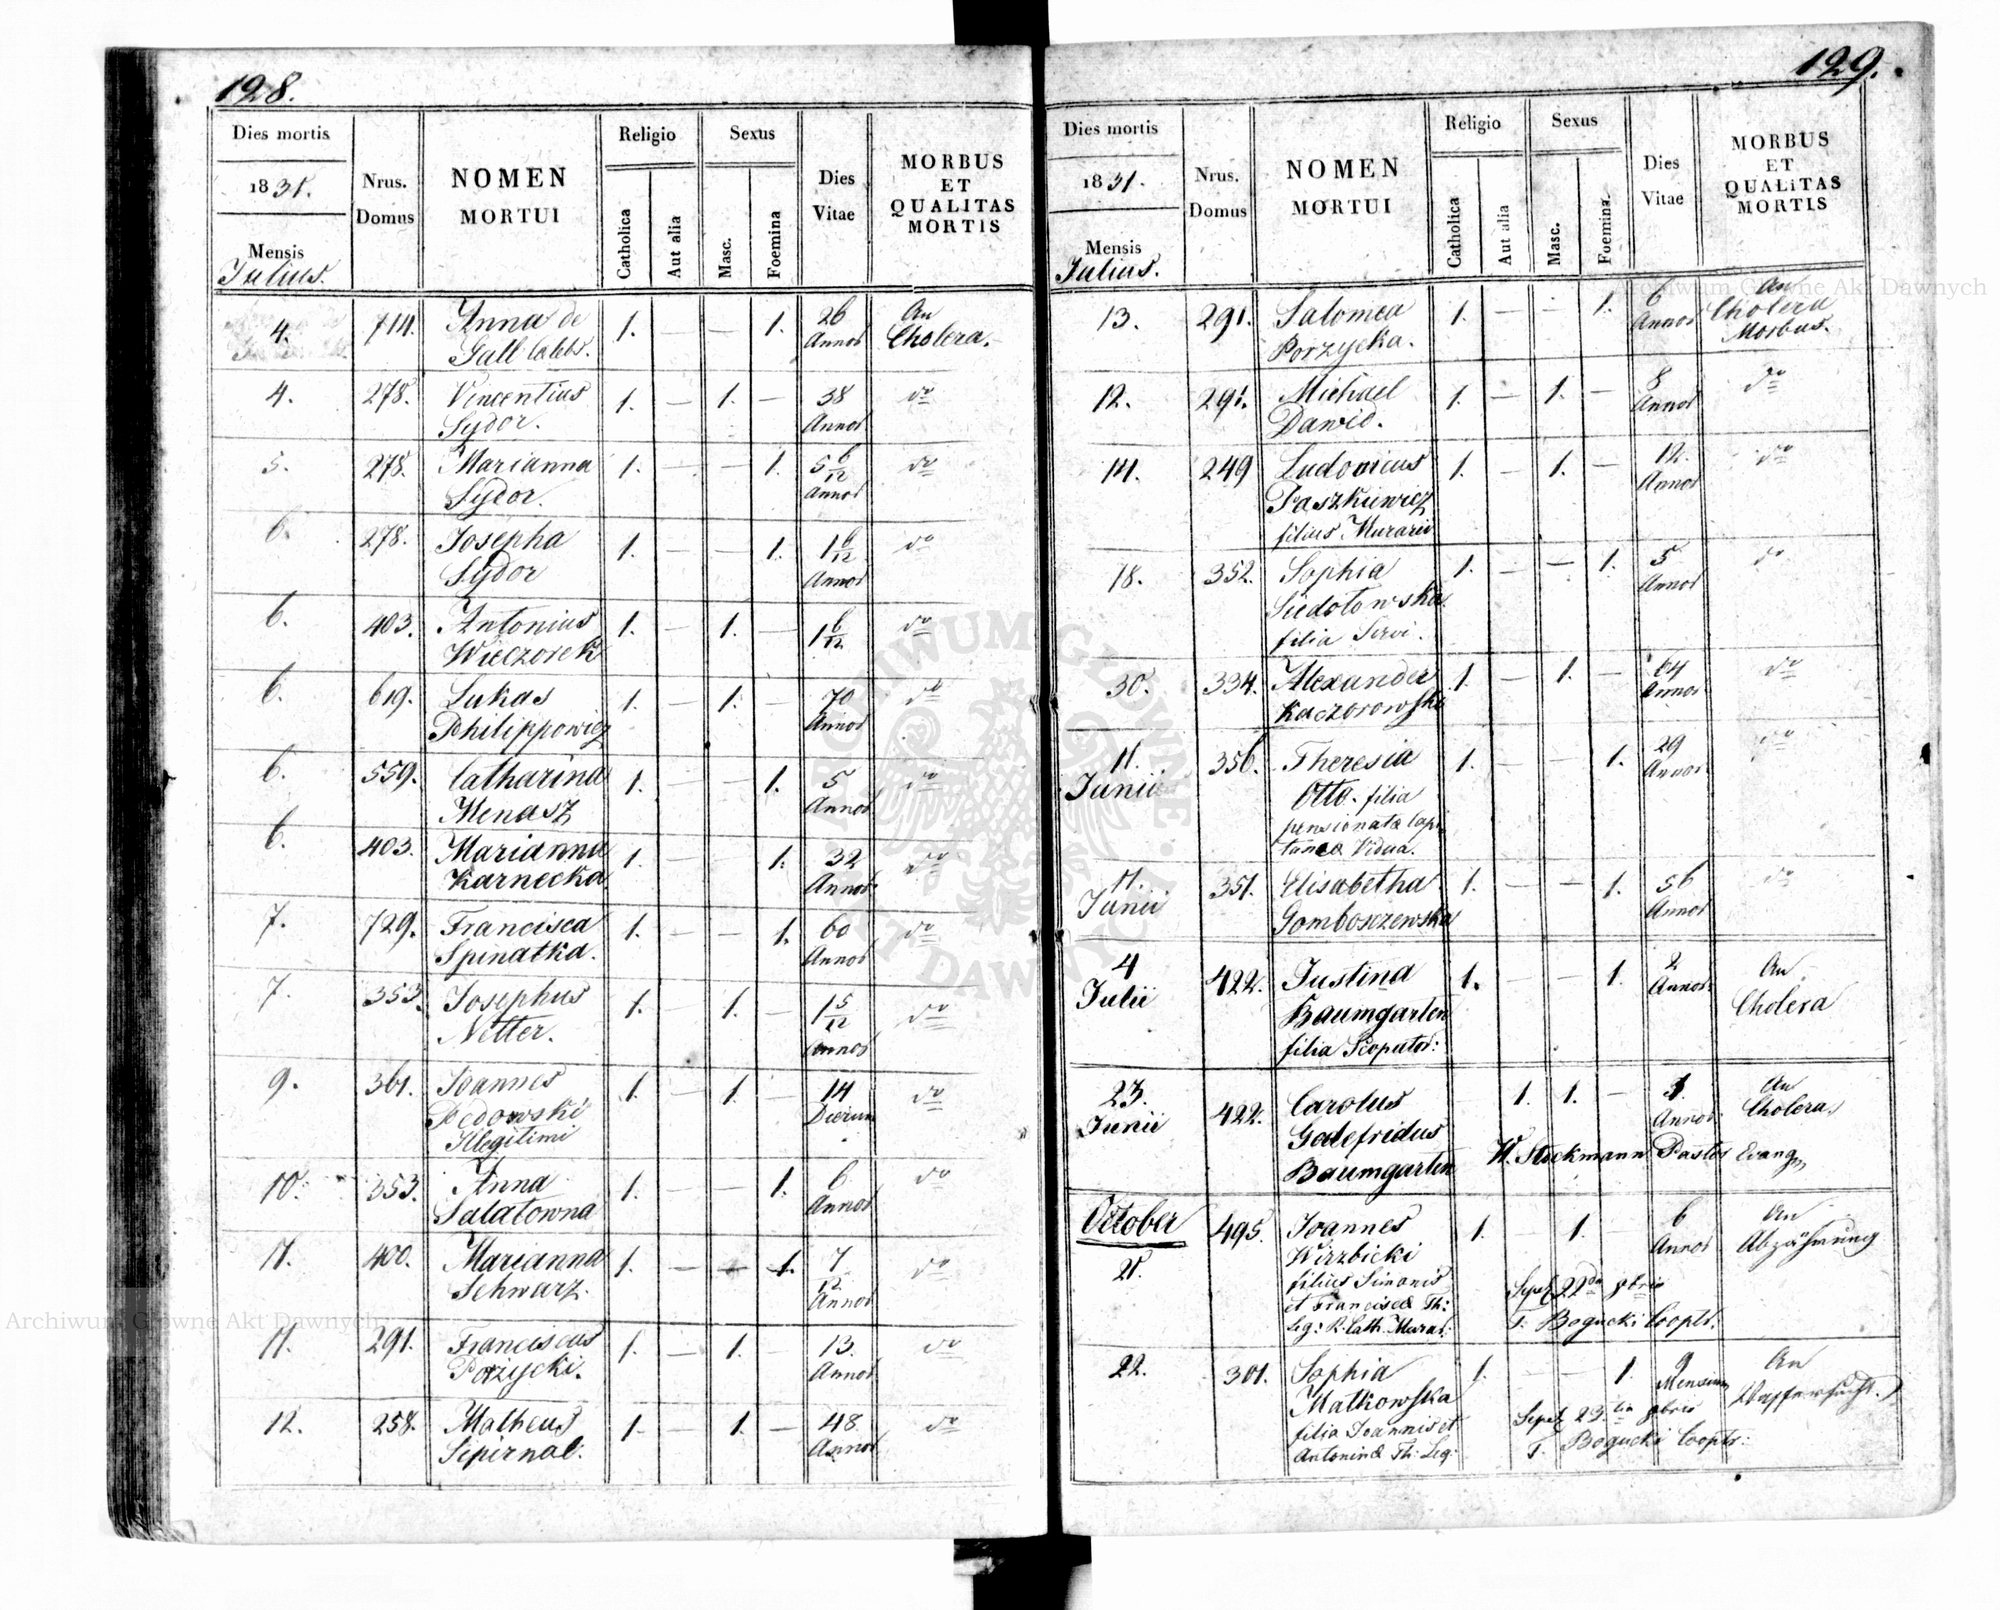 128.
Dies mortis
1831.
Mensis
Julius.
Nrus.
Domus
NOMEN
MORTUI
Religio
Catholica
Aut alia
Sexus
Masc.
Foemina
Dies
Vitae
MORBUS
ET
QUALITAS
MORTIS
4. 714. Anna de 1. — — 1. 26 An
Gall Annor Cholera.
4. 278. Vincentius 1. — 1. — 38 do
Sydor. Annor
5. 278. Marianna 1. — — 1. 5 6/12 do
Sydor. Annor
6. 278. Josepha 1. — — 1. 1 6/12 do
Sydor Annor
6. 403. Antonius 1. — 1. — 1 6/12 do
Wieczorek
6. 619. Lukas 1. — 1. — 70 do
Philippowicz Annor
6. 559. Catharina 1. — — 1. 5 do
Menasz Annor
6. 403. Marianna 1. — — 1. 32 do
Karnecka Annor
7. 729. Francisca 1. — — 1. 60 do
Spinatka. Annor
7. 353. Josephus 1. — 1. — 1 5/12 do
Netter. Annor
9. 361. Joannes 1. — 1. — 14 do
Fedowski Dierum
Illegitimi
10. 353. Anna 1. — — 1. 6 do
Salatowna Annor
11. 400. Marianna 1. — — 1. 7/12 do
Schwarz. Annor
11. 291. Franciscus 1. — 1. — 13. do
Porzycki. Annor
12. 258. Matheus 1. — 1. — 48 do
Sipirnal. Annor
129.
Dies mortis
1831.
Mensis
Julius.
Nrus.
Domus
NOMEN
MORTUI
Religio
Catholica
Aut alia
Sexus
Masc.
Foemina.
Dies
Vitae
MORBUS
ET
QUALITAS
MORTIS
13. 291. Salomea 1. — — 1. 6 An
Porzycka. Annor Cholera
Morbus.
12. 291. Michael 1. — 1. — 8 do
Dawid. Annor
14. 249 Ludovicus 1. — 1. — 12. do
Paszkiewicz Annor
filius Murarii
18. 352. Sophia 1. — — 1. 5 do
Siedotowska Annor
filia Servi.
30. 334. Alexander 1. — 1. — 64 do
Kaczorowski Annor
11. 356. Theresia 1. — — 1. 29 do
Junii Otto. filia Annor
pensionata Capi
tanea Vidua.
11. 351. Elisabetha 1. — — 1. 56 do
Junii Gomboszewska Annor
4 422. Justina 1. — — 1. 2 An
Julii Baumgarten Annor: Cholera
filia Scopator:
23. 422. Carolus 1. 1. — 1. An
Junii Godefridus Annor Cholera.
Baumgarten W. Stockmann Pastor Evang
October 495. Joannes 1. 1. — 6 An
21. Wirzbicki Annor Abzährung
filius Simonis Sepel 22da 8bris
et Francisca Th: T. Bogucki Coopts.
Leg: R. Cath. Murar.
22. 301. Sophia 1. — — 1. 9 An
Malkowska Mensium Wassersucht.
filia Joannis et Sepel 23tia 8bris
Antonina Th: Leg: T. Bogucki Coopts:
Archiwum Główne Akt Dawnych
Archiwum Główne Akt Dawnych
ARCHIWUM GŁÓWNE AKT DAWNYCH